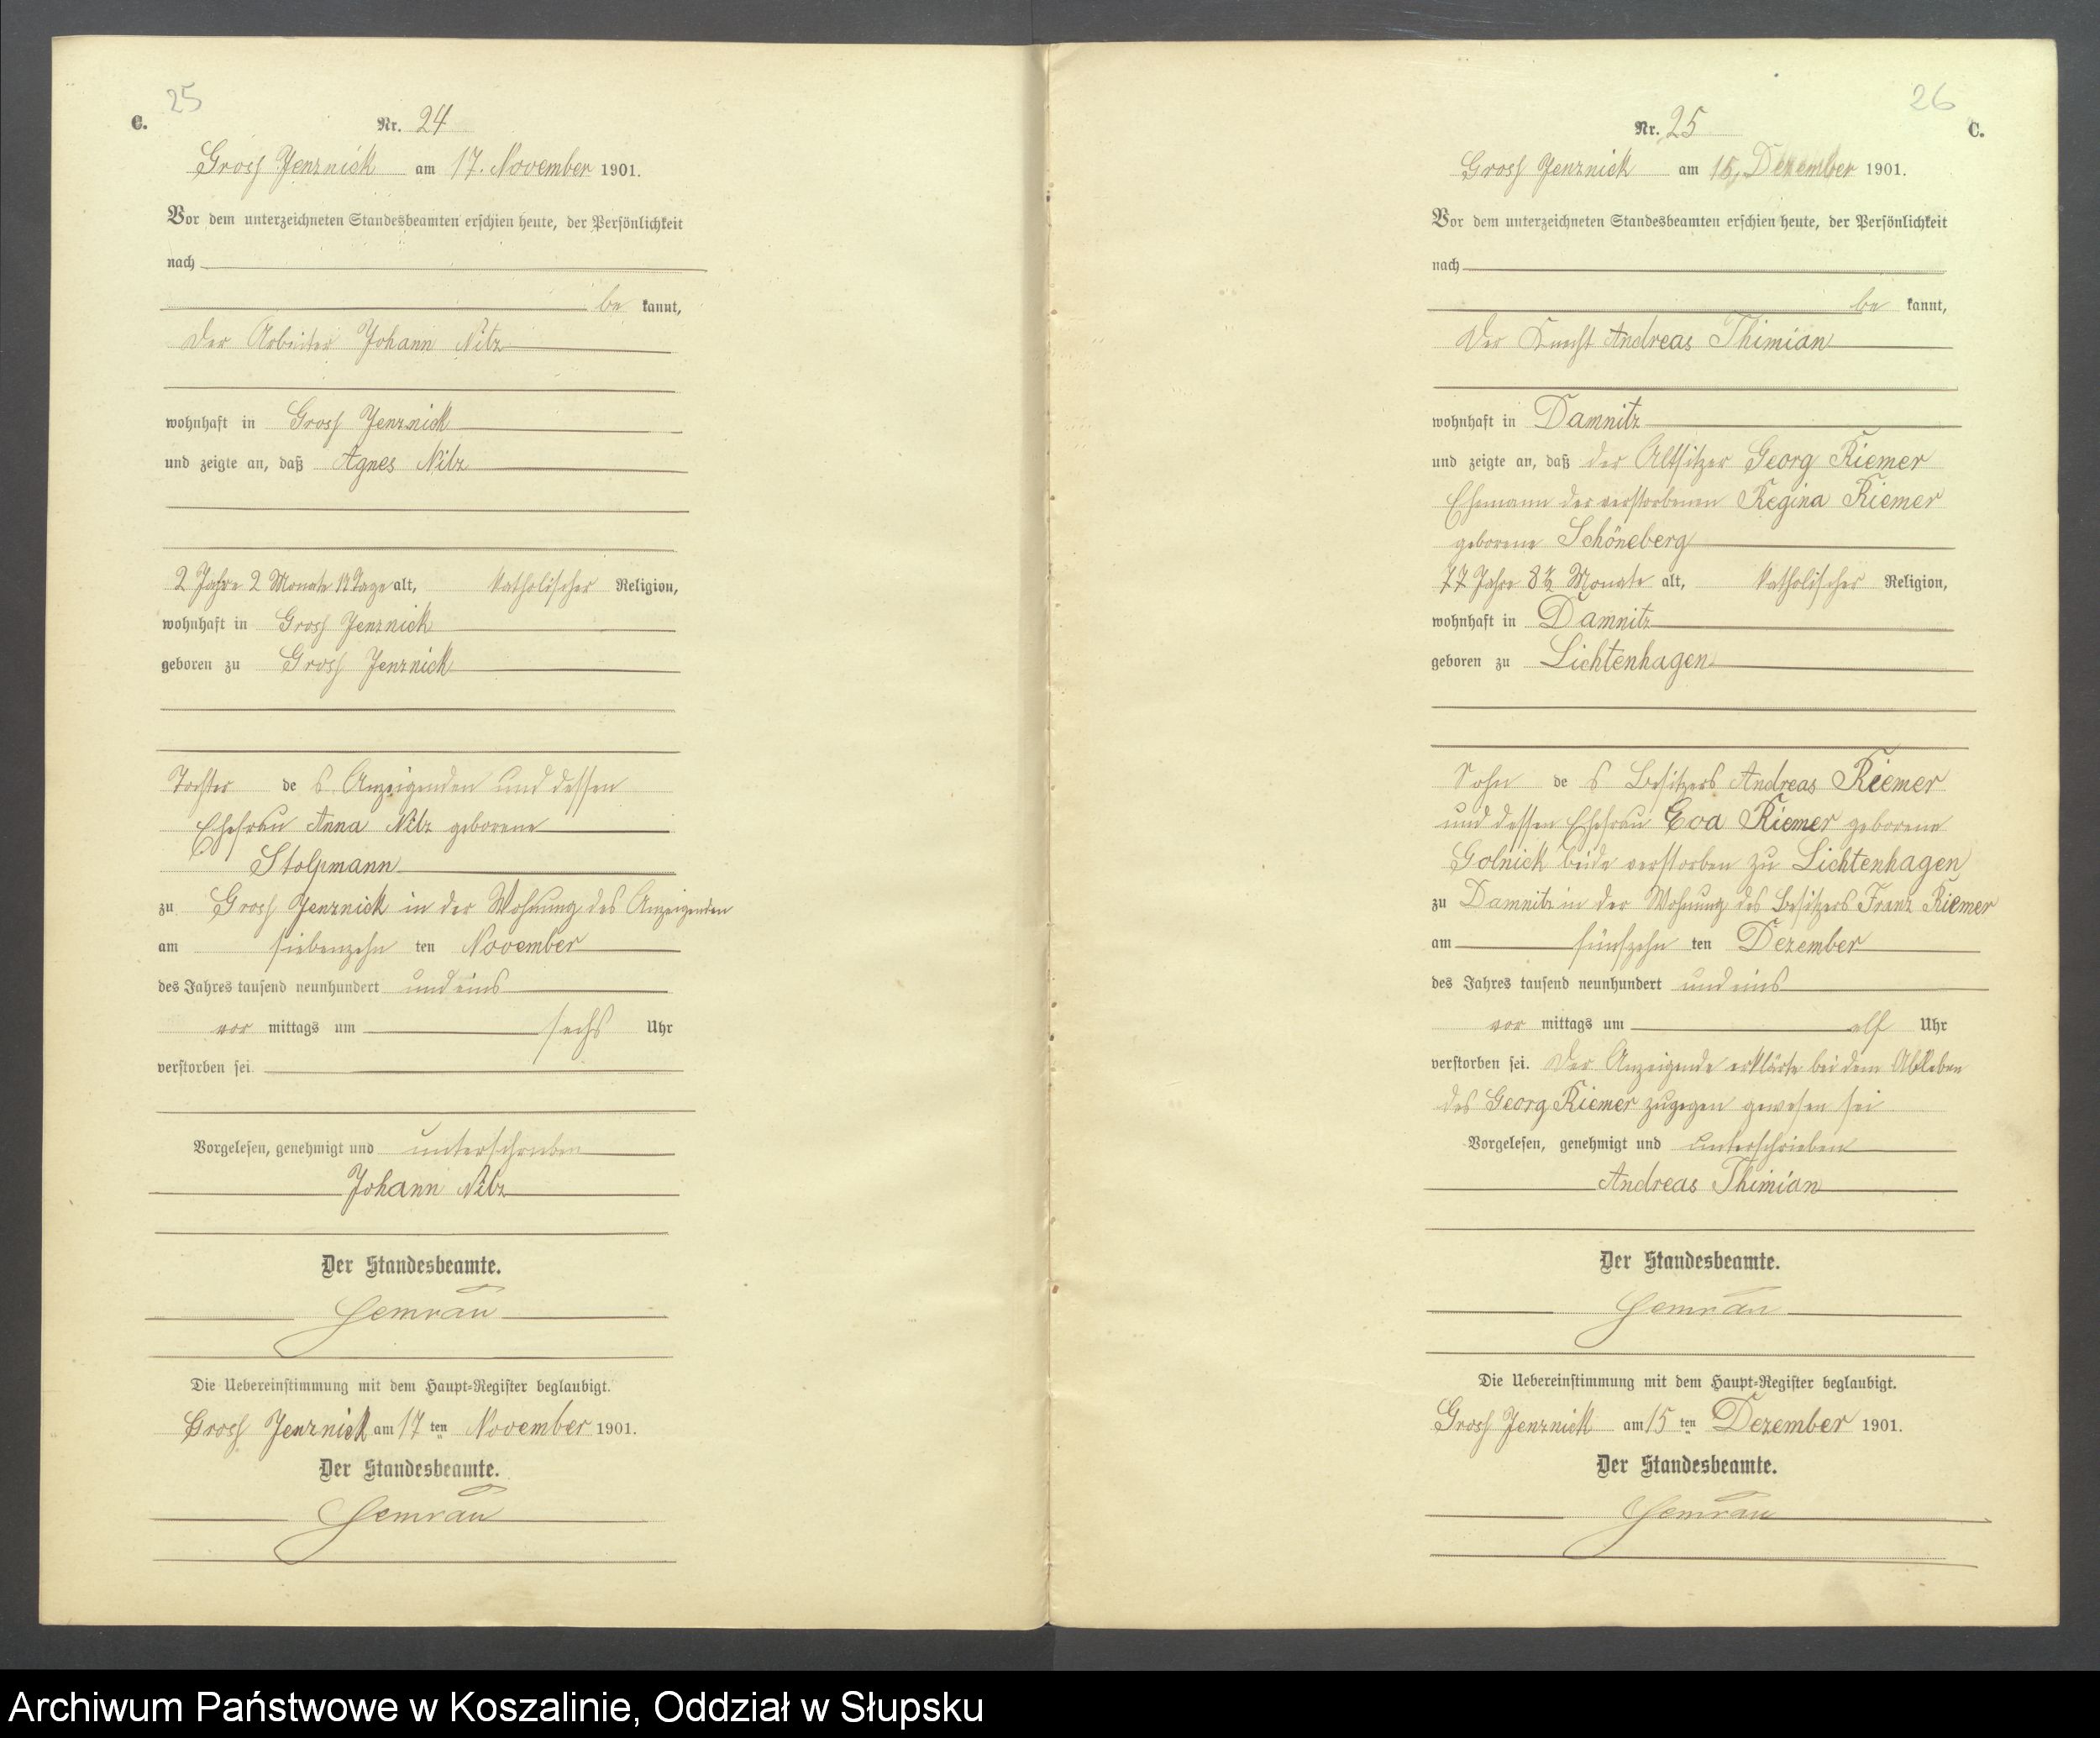 25
C.
Nr. 24
Gross Jenznick am 17. November 1901.
Vor dem unterzeichneten Standesbeamten erschien heute, der Persönlichkeit
nach
be kannt,
der Arbeiter Johann Nitz
wohnhaft in Gross Jenznick
und zeigte an, daß Agnes Nitz
2 Jahre 2 Monate 17 Tage alt, katholischer Religion,
wohnhaft in Gross Jenznick
geboren zu Gross Jenznick
Tochter de s Anzeigenden und dessen
Ehefrau Anna Nitz geborene
Stolpmann
zu Gross Jenznick in der Wohnung des Anzeigenden
am siebenzehn ten November
des Jahres tausend neunhundert und eins
vor mittags um sechs Uhr
verstorben sei.
Vorgelesen, genehmigt und unterschrieben
Johann Nitz
Der Standesbeamte.
Gemrau
Die Uebereinstimmung mit dem Haupt-Register beglaubigt.
Gross Jenznick am 17 ten November 1901.
Der Standesbeamte.
Gemrau
26
Nr. 25
C.
Gross Jenznick am 15, Dezember 1901.
Vor dem unterzeichneten Standesbeamten erschien heute, der Persönlichkeit
nach
be kannt,
der Knecht Andreas Thimian
wohnhaft in Damnitz
und zeigte an, daß der Altsitzer Georg Riemer
Ehemann der verstorbenen Regina Riemer
geborene Schöneberg
77 Jahre 8½ Monate alt, katholischer Religion,
wohnhaft in Damnitz
geboren zu Lichtenhagen
Sohn de s Besitzers Andreas Riemer
und dessen Ehefrau Eva Riemer geborene
Golnick beide verstorben zu Lichtenhagen
zu Damnitz in der Wohnung des Besitzers Franz Riemer
am fünfzehn ten Dezember
des Jahres tausend neunhundert und eins
vor mittags um elf Uhr
verstorben sei. Der Anzeigende erklärte bei dem Ableben
des Georg Riemer zugegen gewesen sei
Vorgelesen, genehmigt und unterschrieben
Andreas Thimian
Der Standesbeamte.
Gemrau
Die Uebereinstimmung mit dem Haupt-Register beglaubigt.
Gross Jenznick am 15 ten Dezember 1901.
Der Standesbeamte.
Gemrau
Archiwum Państwowe w Koszalinie, Oddział w Słupsku